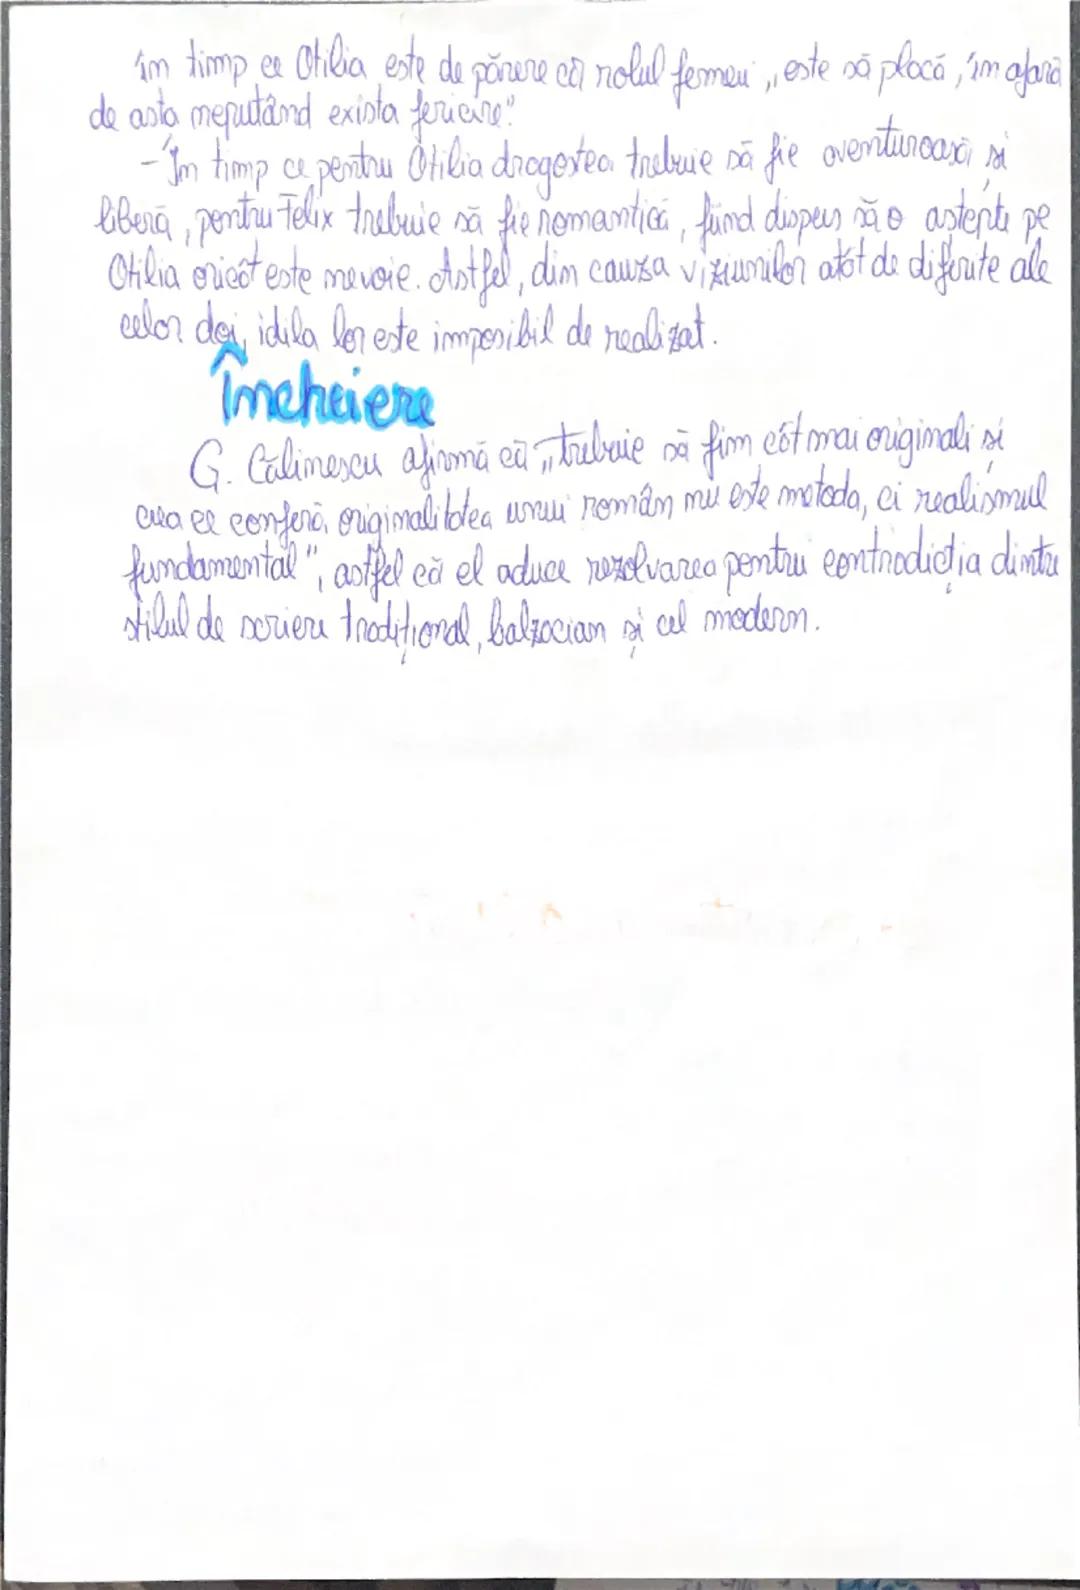 în timp ce Otilia este de părere că rolul femeii „este să placă, în afară
de asta neputând exista fericire".
- În timp ce pentru Otilia dragostea trebuie să fie aventuroasă și
liberă, pentru Felix trebuie să fie romantică, fiind dispus să o aștepte pe
Otilia oricât este nevoie. Astfel, din cauza viziunilor atât de diferite ale
celor doi, idila lor este imposibil de realizat.
Încheiere
G. Călinescu afirmă că „trebuie să fim cât mai originali și
ceea ce conferă originalitatea unui român nu este metoda, ci realismul
fundamental", astfel că el aduce rezolvarea pentru contradicția dintre
stilul de scriere tradițional, balzacian și cel modern.